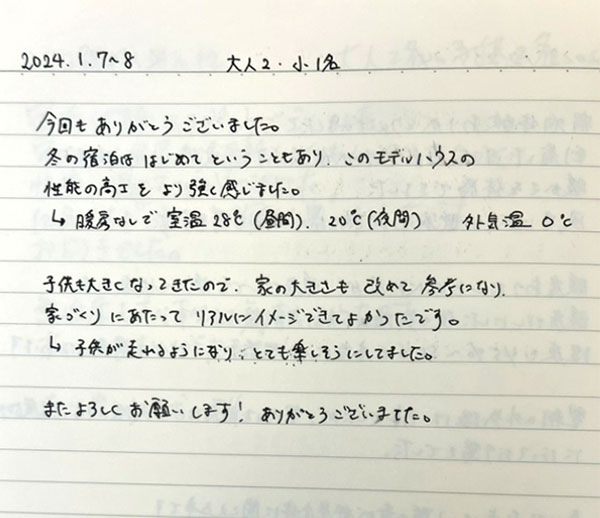 2024.1.7~8 大人2・小1名
今回も ありがとうございました。
冬の宿泊は はじめて ということもあり、このモデルハウスの
性能の高さを より強く感じました。
↳ 暖房なしで 室温 28℃ (昼間)、20℃ (夜間) 外気温 0℃
子供も大きくなってきたので、家の大きさも 改めて 参考になり、
家づくりにあたって リアルにイメージできてよかったです。
↳ 子供が走れるようになり、とても楽しそうにしてました。
またよろしくお願いします! ありがとうございました。